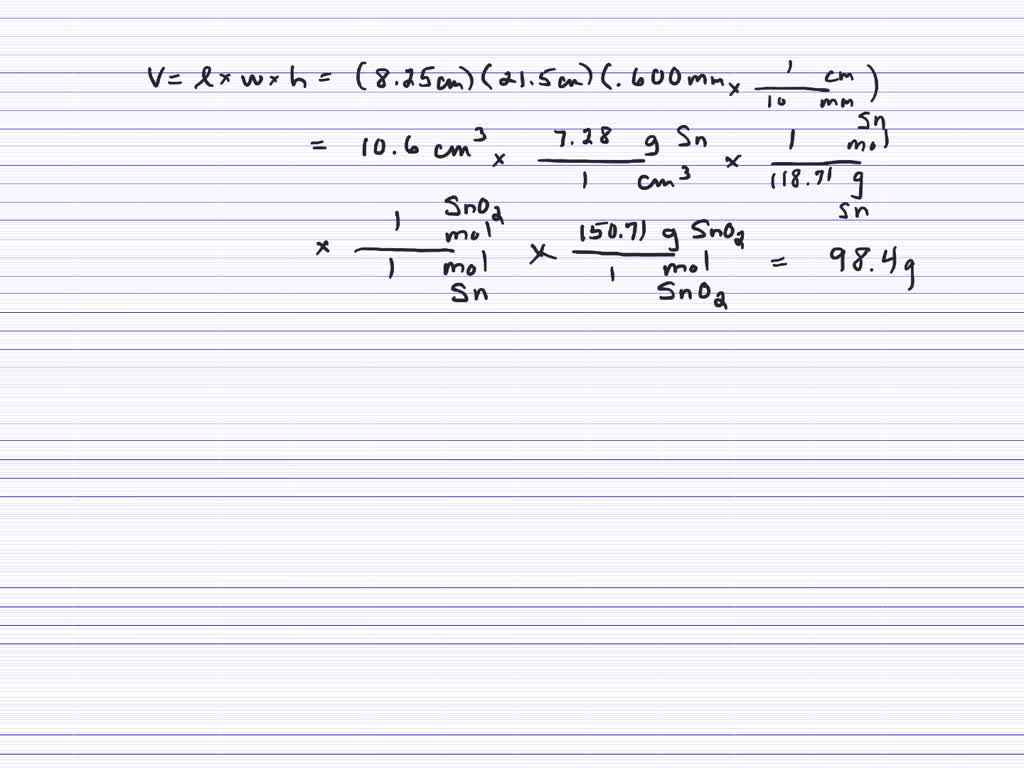 V = l × w × h = (8.25cm)(21.5cm)(.600mm × 1 cm / 10 mm)
= 10.6 cm³ × 7.28 g Sn / 1 cm³ × 1 mol Sn / 118.71 g Sn
× 1 mol SnO₂ / 1 mol Sn × 150.71 g SnO₂ / 1 mol SnO₂ = 98.4g